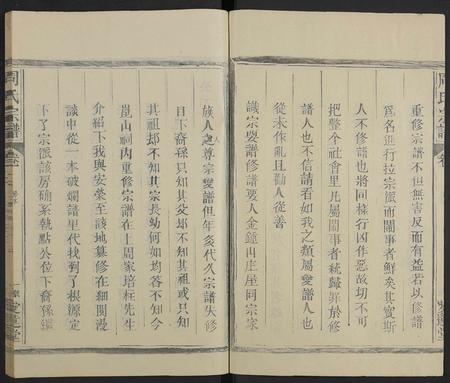 重修宗譜不但無害反而有益若以修譜
為名進行拉宗派而鬧事者鮮矣其實斯
人不修譜也將同樣行凶作惡故切不可
把整个社會里凡屬鬧事者統歸罪於修
譜人也不信請看如我之類屬愛譜人也
從未作乱且勸人從善
識宗娶譜修譜癸人金鐘山庄座同宗家
族人之尊宗愛譜但年多代久宗譜失修
目下裔孫只知其父却不知其祖或只知
其祖却不知其宗長幼何如均各不知今
崑山祠内重修宗譜在上周家培标先生
介紹下我與安榮至該地纂修在細閱漫
談中從一本破爛譜里代找到了根源定
下了宗派該房确系執點公位下裔孫繼
周氏宗譜
卷二
愛蓮堂
周氏宗譜
卷
愛蓮堂